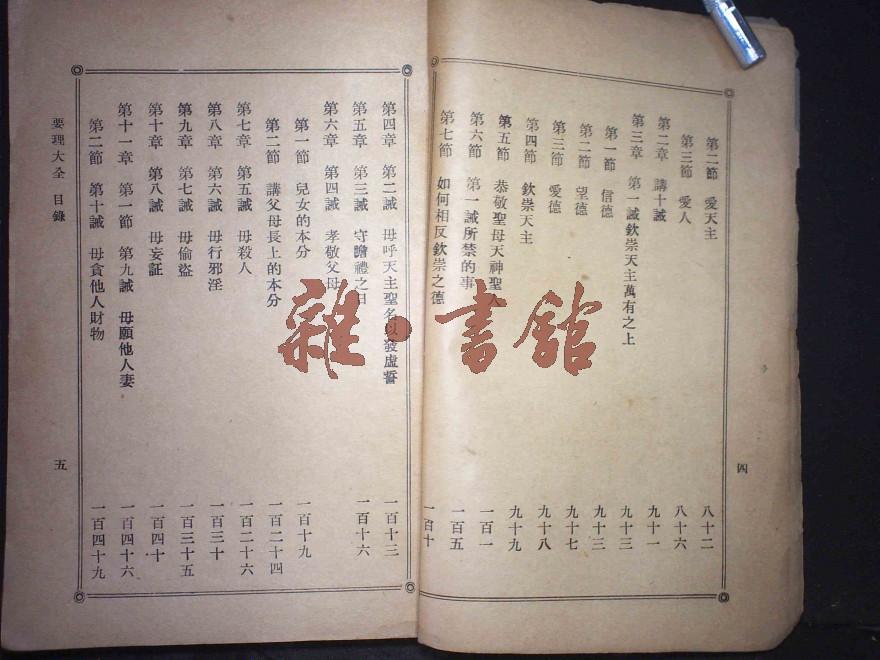 第二節 愛天主 八十二
第三節 愛人 八十六
第二章 講十誡 九十一
第三章 第一誡欽崇天主萬有之上 九十三
第一節 信德 九十三
第二節 望德 九十七
第三節 愛德 九十八
第四節 欽崇天主 九十九
第五節 恭敬聖母天神聖人 一百一
第六節 第一誡所禁的事 一百五
第七節 如何相反欽崇之德 一百十
四
第四章 第二誡 毋呼天主聖名以發虛誓 一百十三
第五章 第三誡 守瞻禮之日 一百十六
第六章 第四誡 孝敬父母
第一節 兒女的本分 一百十九
第二節 講父母長上的本分 一百二十四
第七章 第五誡 毋殺人 一百二十六
第八章 第六誡 毋行邪淫 一百三十
第九章 第七誡 毋偷盜 一百三十五
第十章 第八誡 毋妄証 一百四十
第十一章 第一節 第九誡 毋願他人妻 一百四十六
第二節 第十誡 毋貪他人財物 一百四十九
要理大全 目錄 五
雜·書館